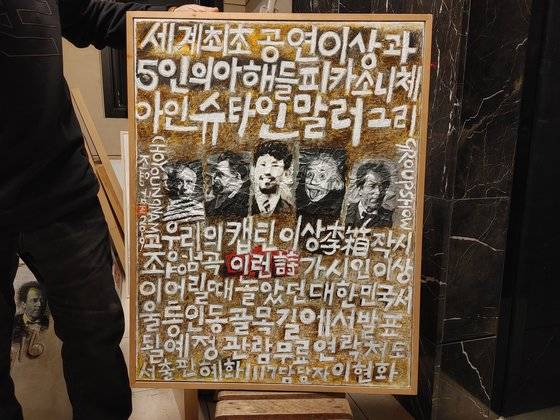 세계최초공연이상과
5인의아해들피카소니체
아인슈타인말러그리
CHOYOUNGNAM
GROUPSHOW
고우리의캡틴이상李箱작시
조영남곡이런詩가시인이상
이어릴때놀았던대한민국서
울통인동골목길에서발표
될예정관람무료연락처도
서출판혜화1117담당자이현화